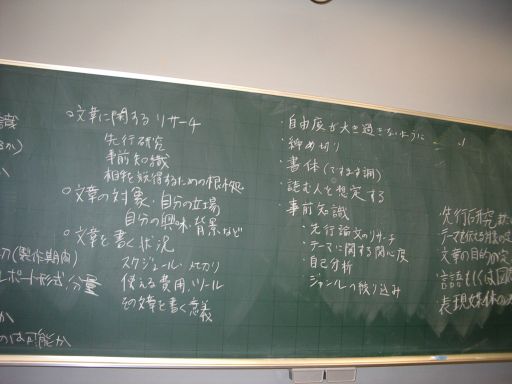 識
か)
か
切(製作期間)
レポート形式/分量
か
のは可能か
○文章に関するリサーチ
先行研究
事前知識
相手を説得するための根拠
○文章の対象・自分の立場
自分の興味・背景など
○文章を書く状況
スケジュール・〆切り
使える費用・ツール
その文章を書く意義
・自由度が大き過ぎないように
・締め切り
・書体(ですます調)
・読む人を想定する
・事前知識
・先行論文のリサーチ
・テーマに関する関心度
・自己分析
・ジャンルの絞り込み
先行研究
テーマを伝える
文章の目的の定
言語もしくは図
表現媒体の